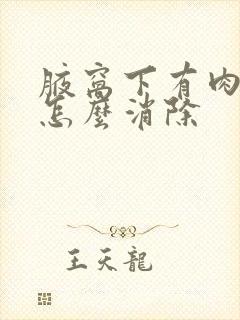 腋窩下有肉
怎麼消除
王天龍